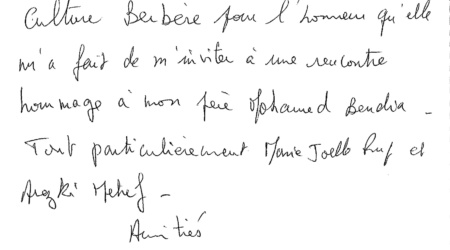 Culture Berbère pour l'honneur qu'elle
m'a fait de m'inviter à une rencontre
hommage à mon père Mohamed Bendia -
Tout particulièrement Marie Joelle et
Arezki Metref -
Amitiés